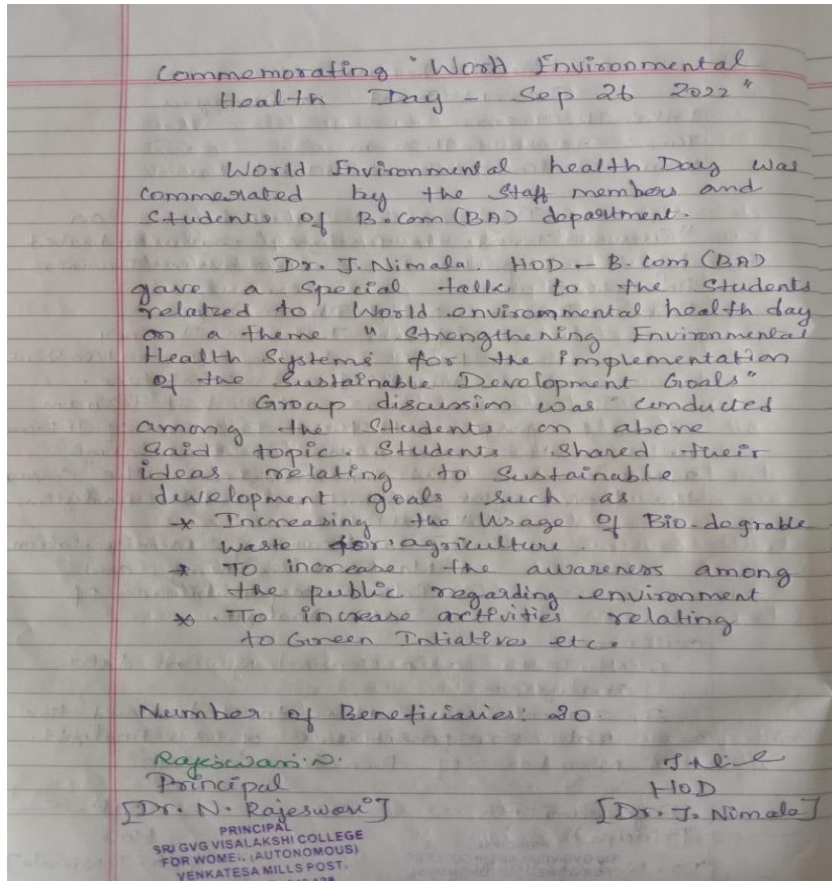 Commemorating "World Environmental
Health Day - Sep 26 2022"
World Environmental health Day was
commerated by the Staff members and
Students of B.Com (BA) department.
Dr. J. Nimala, HOD - B.Com (BA)
gave a special talk to the Students
relatred to World environmental health day
on a theme "Strengthening Environmental
Health Systems for the implementation
of the Sustainable Development Goals"
Group discussion was conducted
among the Students on above
said topic. Students shared their
ideas relating to Sustainable
development goals such as
* Increasing the Usage of Bio-dograble
waste for agriculture.
* To increase the awareness among
the public regarding environment
* To increase activities relating
to Green Intiatives etc.
Number of Beneficiaries: 20
Rajeswari.N.
Principal
HOD
[Dr. N. Rajeswari]
[Dr. J. Nimala]
PRINCIPAL
SRI GVG VISALAKSHI COLLEGE
FOR WOMEN (AUTONOMOUS)
VENKATESA MILLS POST.